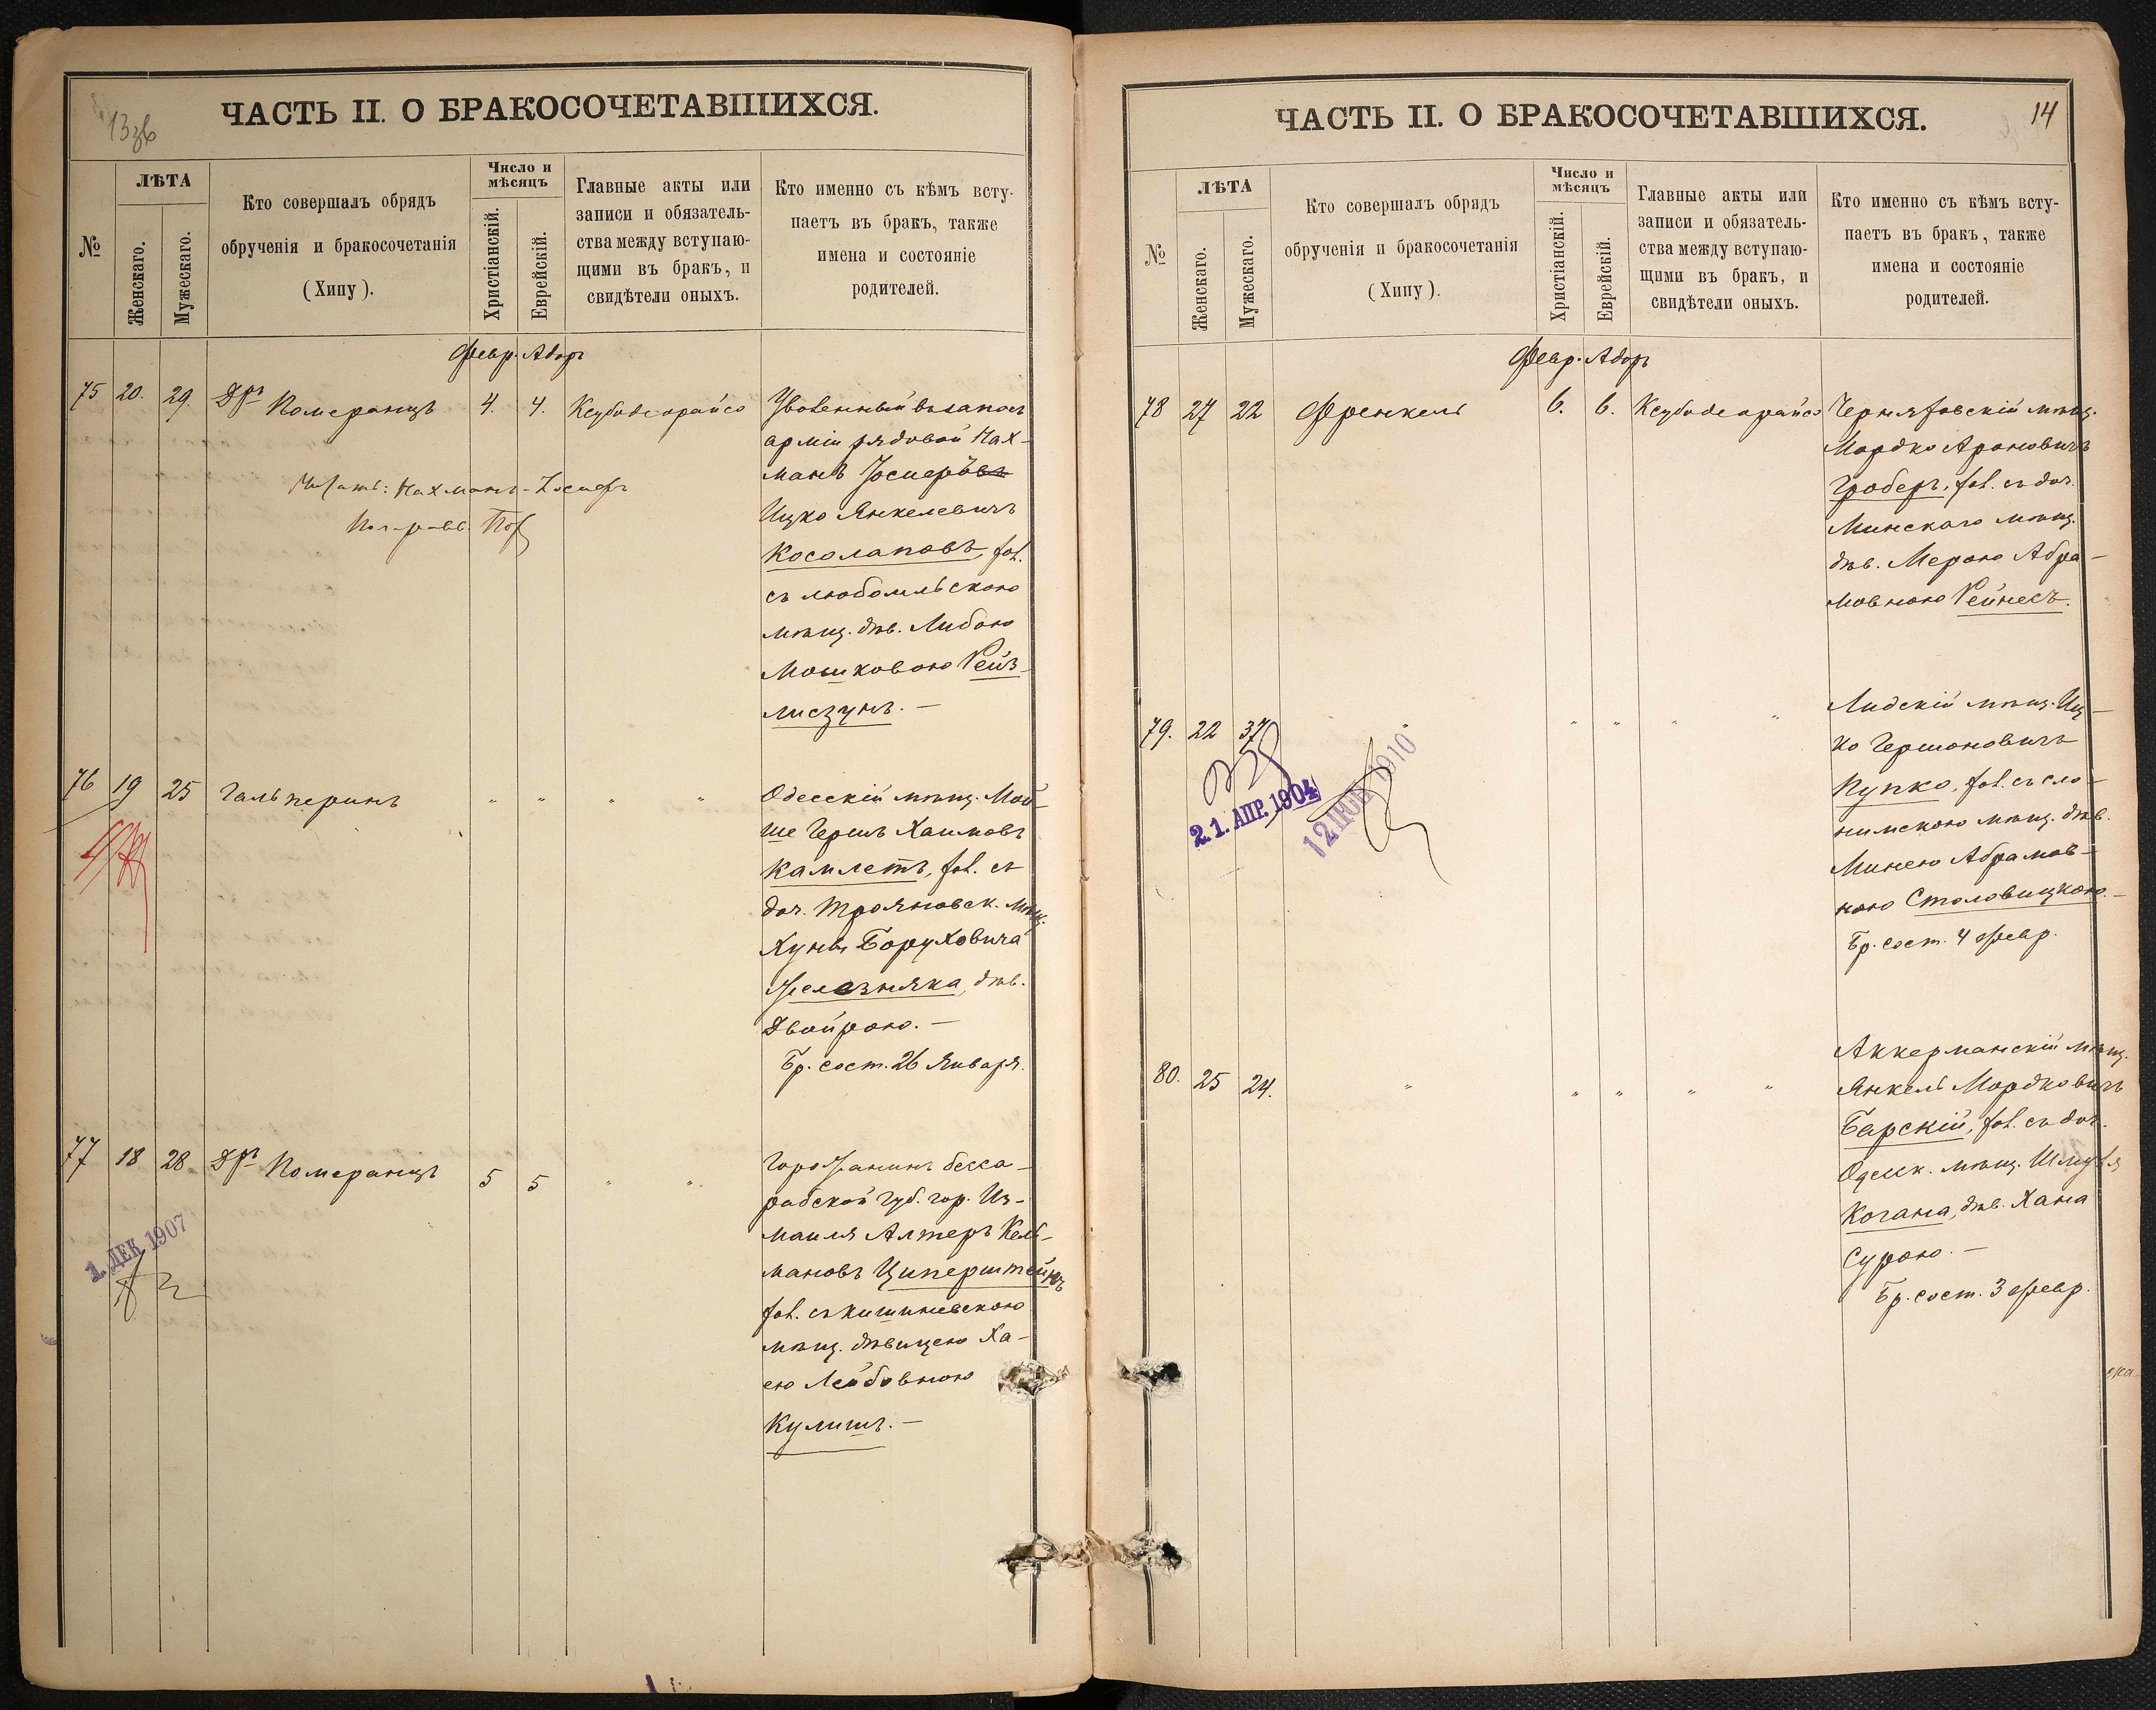 13 об
ЧАСТЬ II. О БРАКОСОЧЕТАВШИХСЯ.
№
ЛѢТА
Женскаго.
Мужескаго.
Кто совершалъ обрядъ
обрученія и бракосочетанія
(Хипу).
Число и
мѣсяцъ
Христіанскій.
Еврейскій.
Главные акты или
записи и обязатель-
ства между вступаю-
щими въ бракъ, и
свидѣтели оныхъ.
Кто именно съ кѣмъ всту-
паетъ въ бракъ, также
имена и состояніе
родителей.
Февр. Адоръ
75 20. 29. Дръ Померанцъ 4. 4. Ксубоdeорайсо
Уволенный въ запасъ
арміи рядовой Нах-
манъ Іосиеровъ
Ицко Янкелевичъ
Косолаповъ, хол.
съ любомльскою
мѣщ. дѣв. Либою
Мошковою Рейз-
лисзунъ. —
Читать: Нахманъ-Іосифъ
76 19 25 Гальперинъ " " " "
Одесскій мѣщ. Мой-
ше Гершъ Хаимовъ
Камлетъ, хол. съ
доч. Трояновск. мѣщ.
Хуны Боруховича
Железняка, дѣв.
Двойрою. —
Бр. сост. 26 Января.
77 18 28 Дръ Померанцъ 5 5 " "
Горожанинъ бесса-
рабской губ. гор. Из-
маиля Алтеръ Кель-
мановъ Циперштейнъ
хол. съ кишиневскою
мѣщ. дѣвицею Ха-
ею Лейбовною
Кулишъ. —
1. ДЕК. 1907
14
ЧАСТЬ II. О БРАКОСОЧЕТАВШИХСЯ.
№
ЛѢТА
Женскаго.
Мужескаго.
Кто совершалъ обрядъ
обрученія и бракосочетанія
(Хипу).
Число и
мѣсяцъ
Христіанскій.
Еврейскій.
Главные акты или
записи и обязатель-
ства между вступаю-
щими въ бракъ, и
свидѣтели оныхъ.
Кто именно съ кѣмъ всту-
паетъ въ бракъ, также
имена и состояніе
родителей.
Февр. Адоръ
78 27 22 Френкель 6. 6. Ксубоdeорайсо
Черняховскій мѣщ.
Мордко Ароновичъ
Гроберъ, хол. съ доч.
Минскаго мѣщ.
дѣв. Мерою Абра-
мовною Рейнесъ.
79. 22 37 " " " " "
Лидскій мѣщ. Иц-
ко Гершоновичъ
Пупко, хол. съ сло-
нимскою мѣщ. дѣв.
Минею Абрамов-
ною Столовицкою. —
Бр. сост. 4 февр.
2. 1. АПР. 1904
12 1910
80. 25 24. " " " " "
Аккерманскій мѣщ.
Янкель Мордковичъ
Барскій, хол. съ доч.
Одесск. мѣщ. Шмуля
Когана, дѣв. Хана
Сурою. —
Бр. сост. 3 февр.